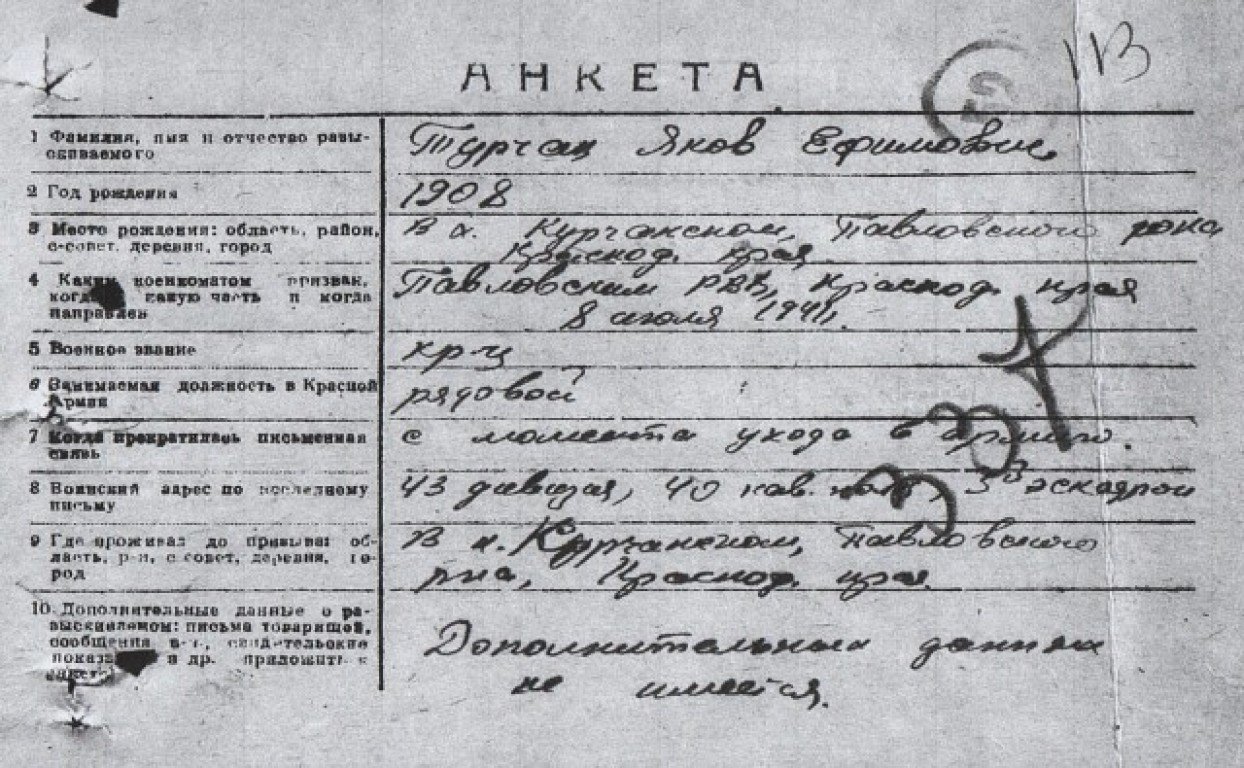 113
АНКЕТА
1 Фамилия, имя и отчество разы-
скиваемого
Турчан Яков Ефимович
2 Год рождения
1908
3 Место рождения: область, район,
с-совет, деревня, город
В х. Курчанском, Павловского рона
Краснод. края
4 Каким военкоматом призван,
когда в какую часть и когда
направлен
Павловским РВК, Краснод. края
8 июля 1941г.
5 Военное звание
кр-ц
6 Занимаемая должность в Красной
Армии
рядовой
7 Когда прекратилась письменная
связь
с момента ухода в армию.
8 Воинский адрес по последнему
письму
43 дивизия, 40 кав. полк, эскадрон
9 Где проживал до призыва: об-
ласть, р-н, с совет, деревня, го-
род
В х. Курчанском, Павловского
р-на, Краснод. края
10. Дополнительные данные о ра-
зыскиваемом: письма товарищей,
сообщения в-ч, свидетельские
показ и др. приложить к
анкете
Дополнительных данных
не имеется.